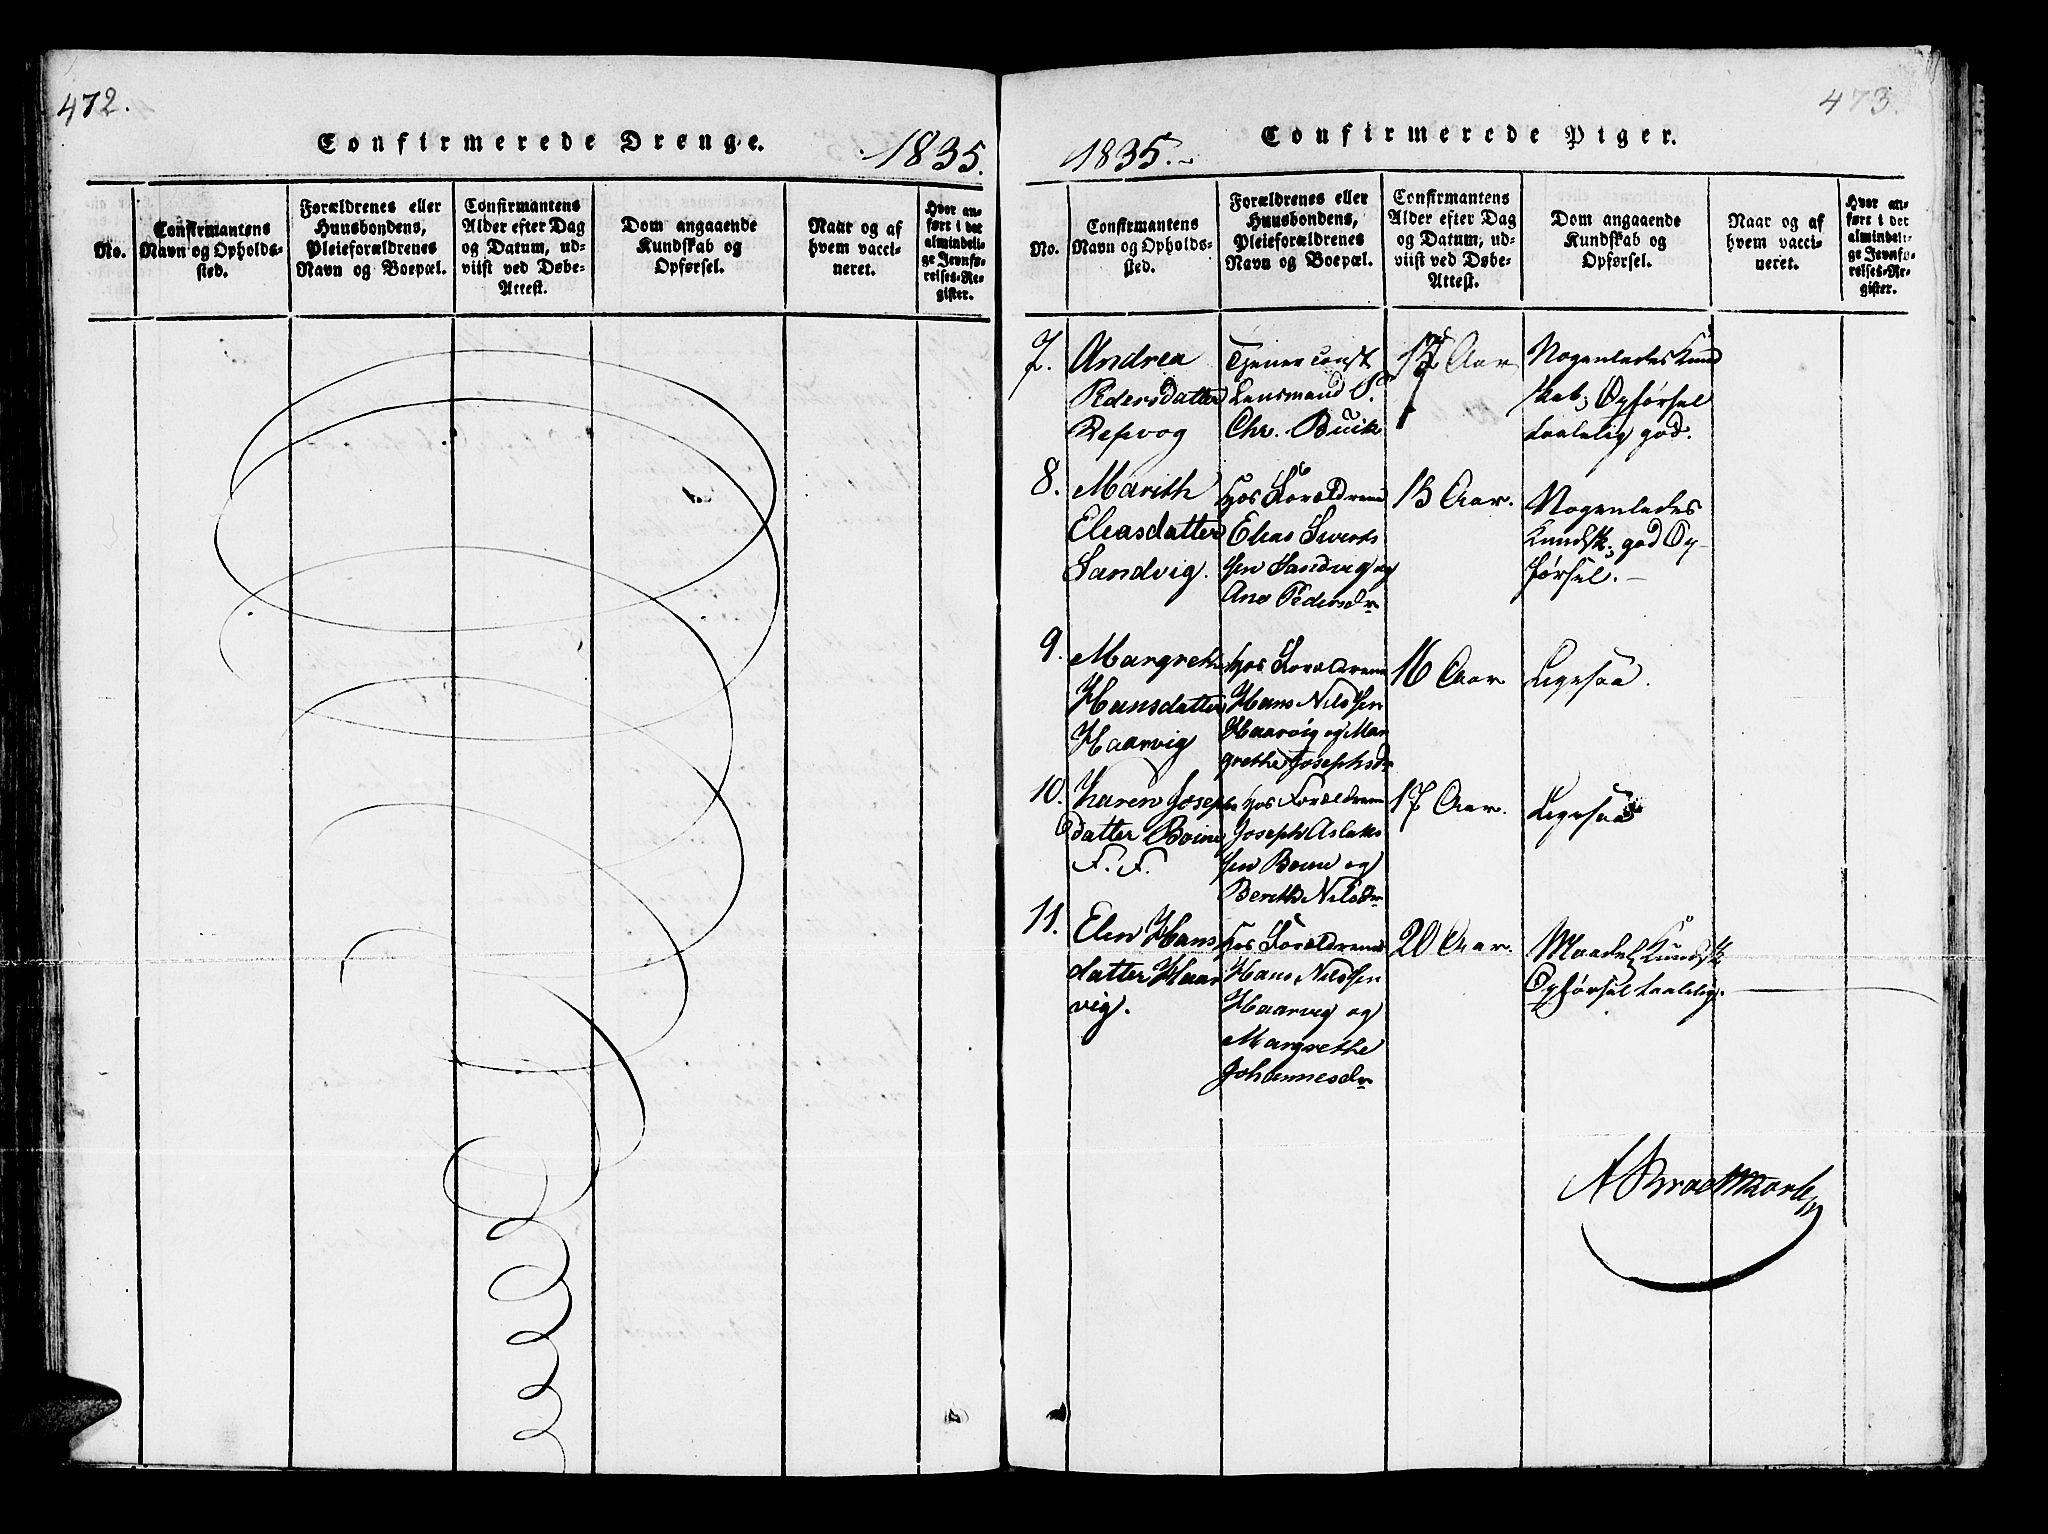 472.
Confirmerede Drenge.
1835.
No.
Confirmantens
Navn og Opholds-
sted.
Forældrenes eller
Huusbondens,
Pleieforældrenes
Navn og Boepæl.
Confirmantens
Alder efter Dag
og Datum, ud-
viist ved Døbe-
Attest.
Dom angaaende
Kundskab og
Opførsel.
Naar og af
hvem vacci-
neret.
Hvor an-
ført i det
almindeli-
ge Jevnfø-
relses-Re-
gister.
473.
Confirmerede Piger.
1835.
No.
Confirmantens
Navn og Opholds-
sted.
Forældrenes eller
Huusbondens,
Pleieforældrenes
Navn og Boepæl.
Confirmantens
Alder efter Dag
og Datum, ud-
viist ved Døbe-
Attest.
Dom angaaende
Kundskab og
Opførsel.
Naar og af
hvem vacci-
neret.
Hvor an-
ført i det
almindeli-
ge Jevnfø-
relses-Re-
gister.
7.
Andrea
Pedersdatter
Refsvog
Tjener const
Lensmand P.
Chr. Buck
Aar
Nogenledes Kund
skab; Opførsel
taalelig god.
8.
Marith
Eliasdatter
Sandvig.
Hos Forældrene
Elias Siverts
sen Sandvig og
Ane Pedersdr
15 Aar.
Nogenledes
Kundsk; god Op-
førsel.
9.
Margrethe
Hansdatter
Haarvig
Hos Forældrene
Hans Nilssen
Haarvig og Mar
grethe Josephsdr
16 Aar
Ligesaa.
10.
Karen Josephs
datter Boine
F. F.
Hos Forældrene
Joseph Aslaks
sen Boine og
Berith Nilsdr
17 Aar.
Ligesaa
11.
Elen Hans
datter Haar
vig.
Hos Forældrene
Hans Nilssen
Haarvig og
Margrethe
Johannesdr
20 Aar.
Maadel. Kundsk
Opførsel taalelig.